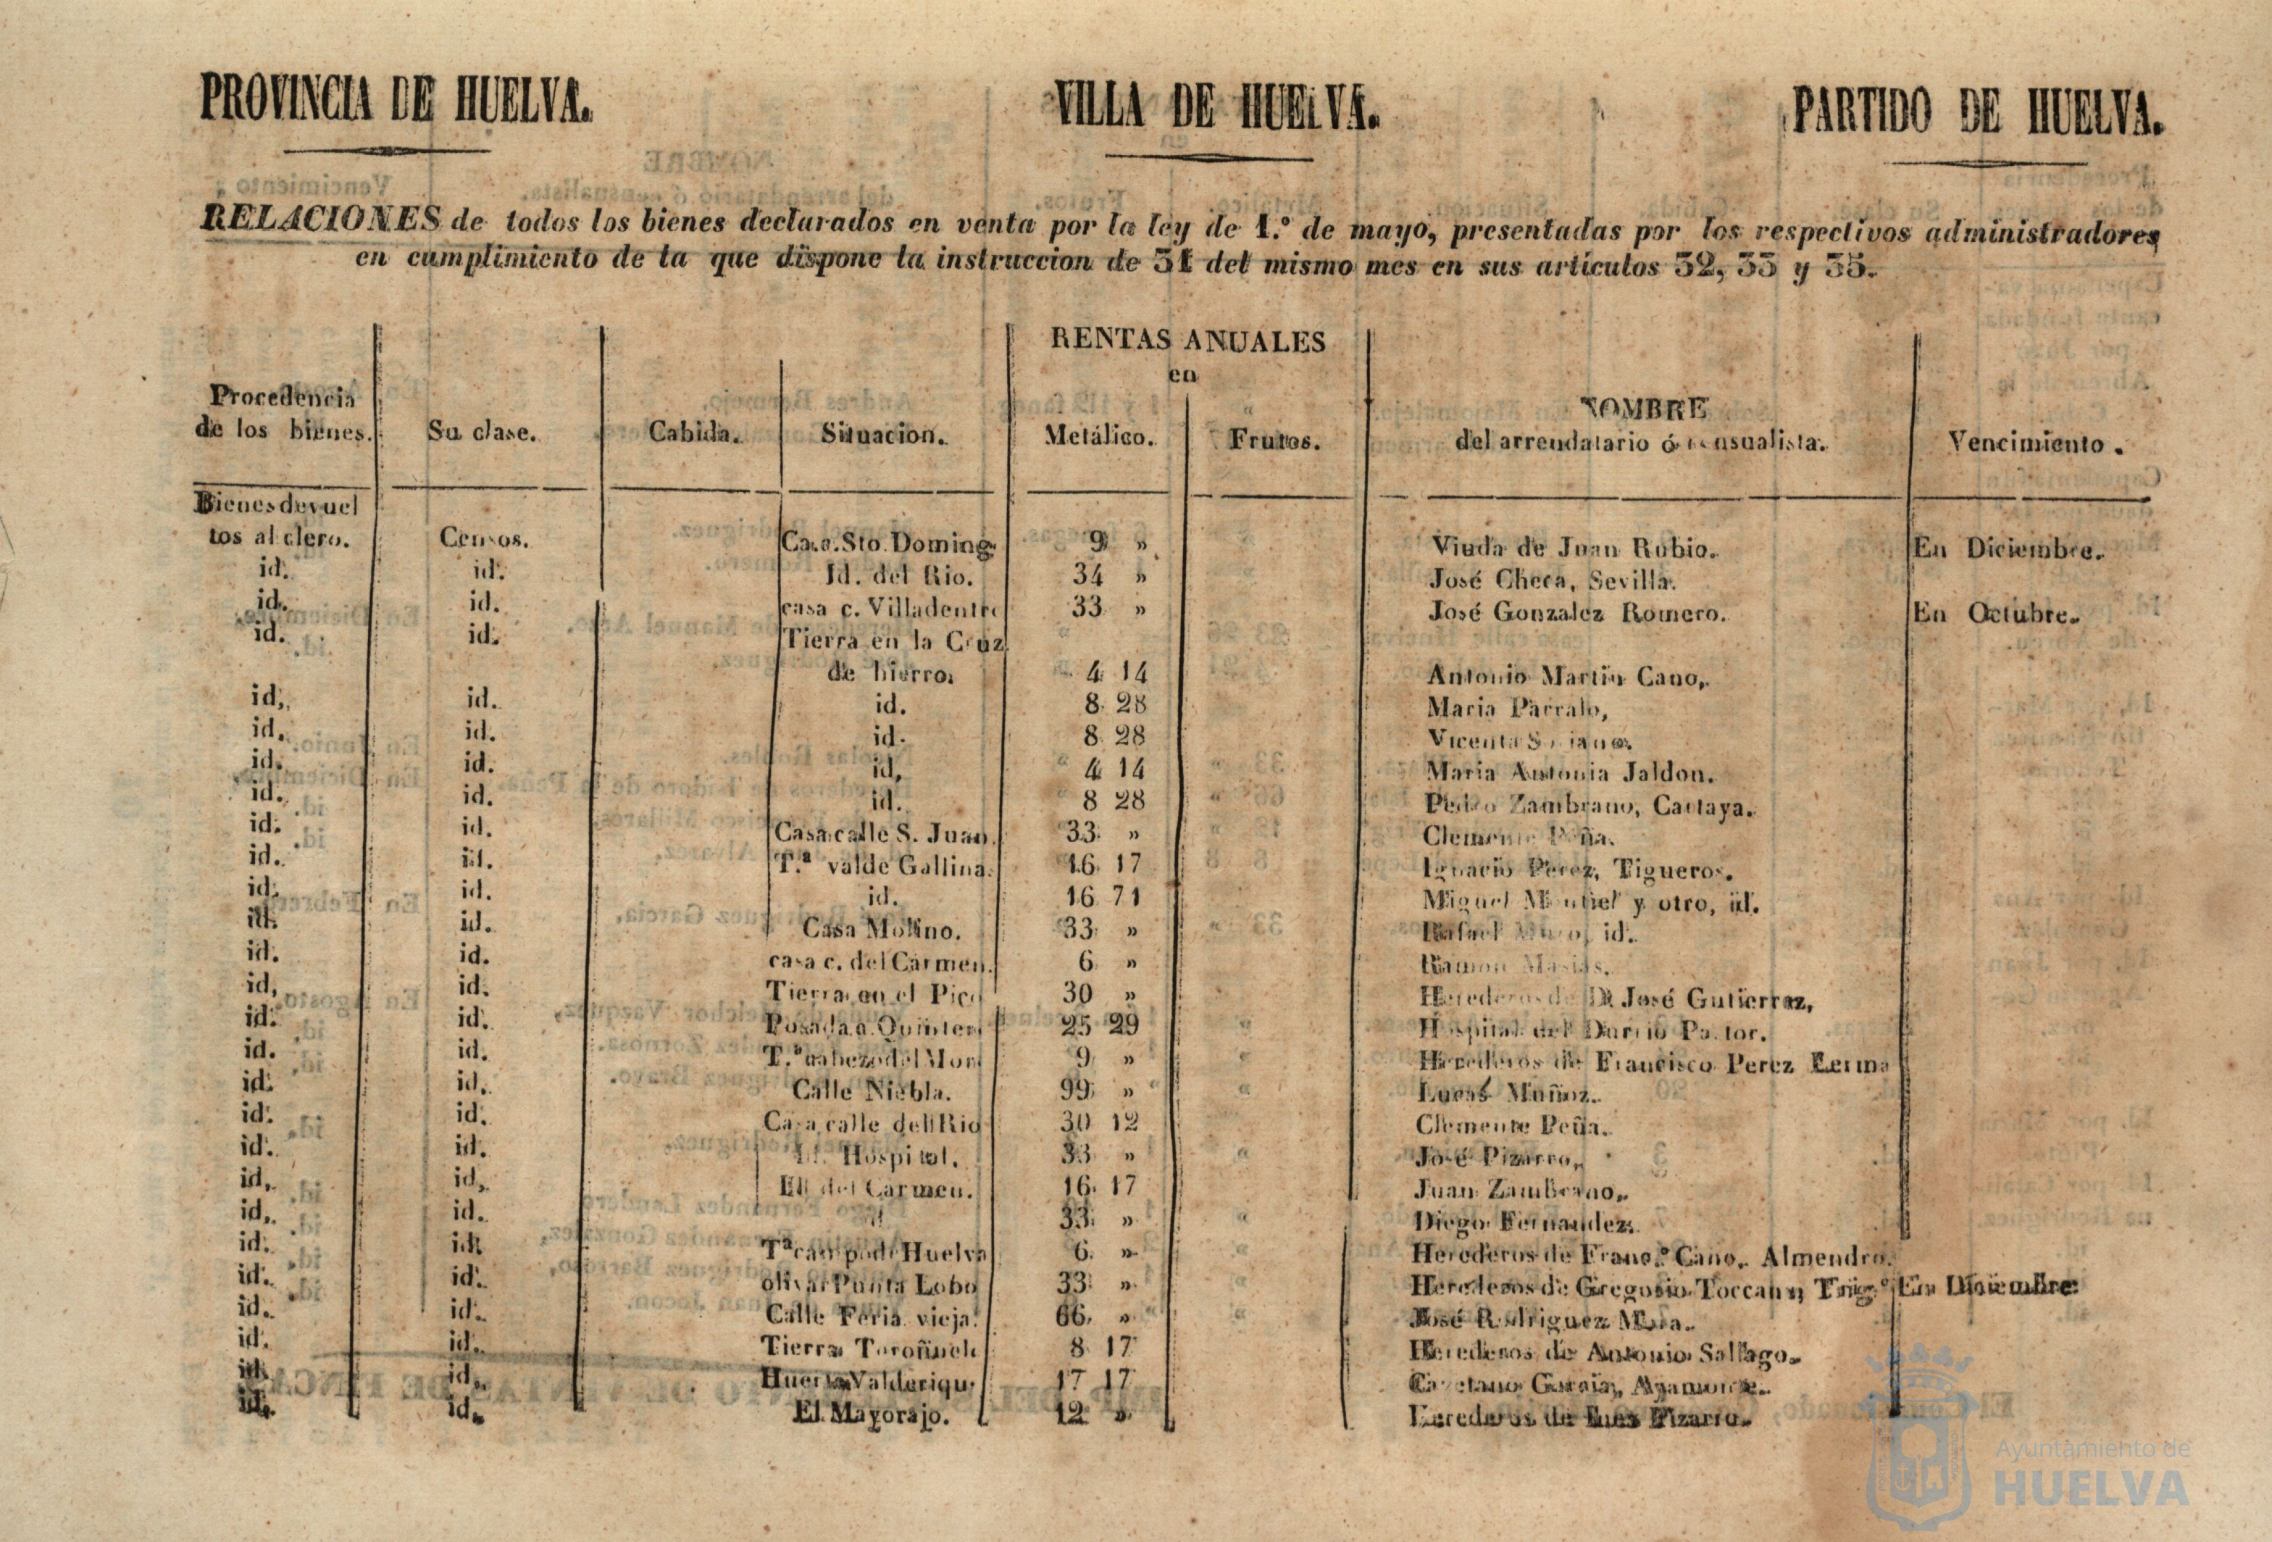 PROVINCIA DE HUELVA. VILLA DE HUELVA. PARTIDO DE HUELVA.
RELACIONES de todos los bienes declarados en venta por la ley de 1.º de mayo, presentadas por los respectivos administradores
en cumplimiento de la que dispone la instruccion de 31 del mismo mes en sus artículos 32, 33 y 35.
RENTAS ANUALES
en
Procedencia NOMBRE
de los bienes. Su clase. Cabida. Situacion. Metálico. Frutos. del arrendatario ó censualista. Vencimiento.
Bienes devuel
tos al clero. Censos. Casa Sto. Doming. 9 » Viuda de Juan Rubio. En Diciembre.
id. id. Id. del Rio. 34 » José Checa, Sevilla.
id. id. casa c. Villadentro 33 » José Gonzalez Romero. En Octubre.
id. id. Tierra en la Cruz
de hierro. 4 14 Antonio Martin Cano,
id, id. id. 8 28 Maria Parralo,
id. id. id. 8 28 Vicenta
id. id. id, 4 14 Maria Antonia Jaldon.
id. id. id. 8 28 Pedro Zambrano, Cartaya.
id. id. Casa calle S. Juan 33 » Clemente Peña.
id. id. T.ª valde Gallina. 16 17 Ignacio Perez, Tigueros.
id. id. id. 16 71 Miguel Montiel y otro, id.
id. id. Casa Molino. 33 » Rafael id.
id. id. casa c. del Carmen. 6 » Ramon Masias.
id, id. Tierra en el Pico 30 » Herederos de D. José Gutierrez,
id. id. Posada a. Quintero 25 29 Hospital del Pastor.
id. id. T.ª cabezo del Mon 9 » Herederos de Francisco Perez Lerma
id. id. Calle Niebla. 99 » Lucas Muñoz.
id. id. Casa calle del Rio 30 12 Clemente Peña.
id. id. Id. Hospital. 33 » José Pizarro,
id, id, Id. del Carmen. 16 17 Juan Zambrano,
id, id. id. 33 » Diego Fernandez.
id. id. Tª campo de Huelva 6 » Herederos de Franc.º Cano, Almendro.
id. id. olivar Punta Lobo 33 » Herederos de Gregorio Toccano, Trig.º En Diciembre
id. id. Calle Feria vieja. 66 » José Rodriguez Mora.
id. id. Tierra 8 17 Herederos de Antonio Sallago.
id. id. Huerta 17 17 Cayetano Garcia, Ayamonte.
id. id. El Mayorajo. 12 » Herederos de Luis Pizarro.
Ayuntamiento de
HUELVA